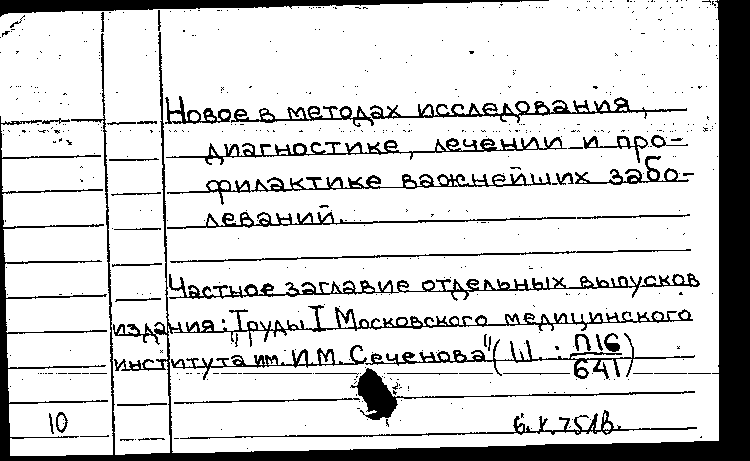 Новое в методах исследования,
диагностике, лечении и про-
филактике важнейших забо-
леваний.
Частное заглавие отдельных выпусков
издания: "Труды I Московского медицинского
института им. И.М. Сеченова" (Ш. : П16/641)
10